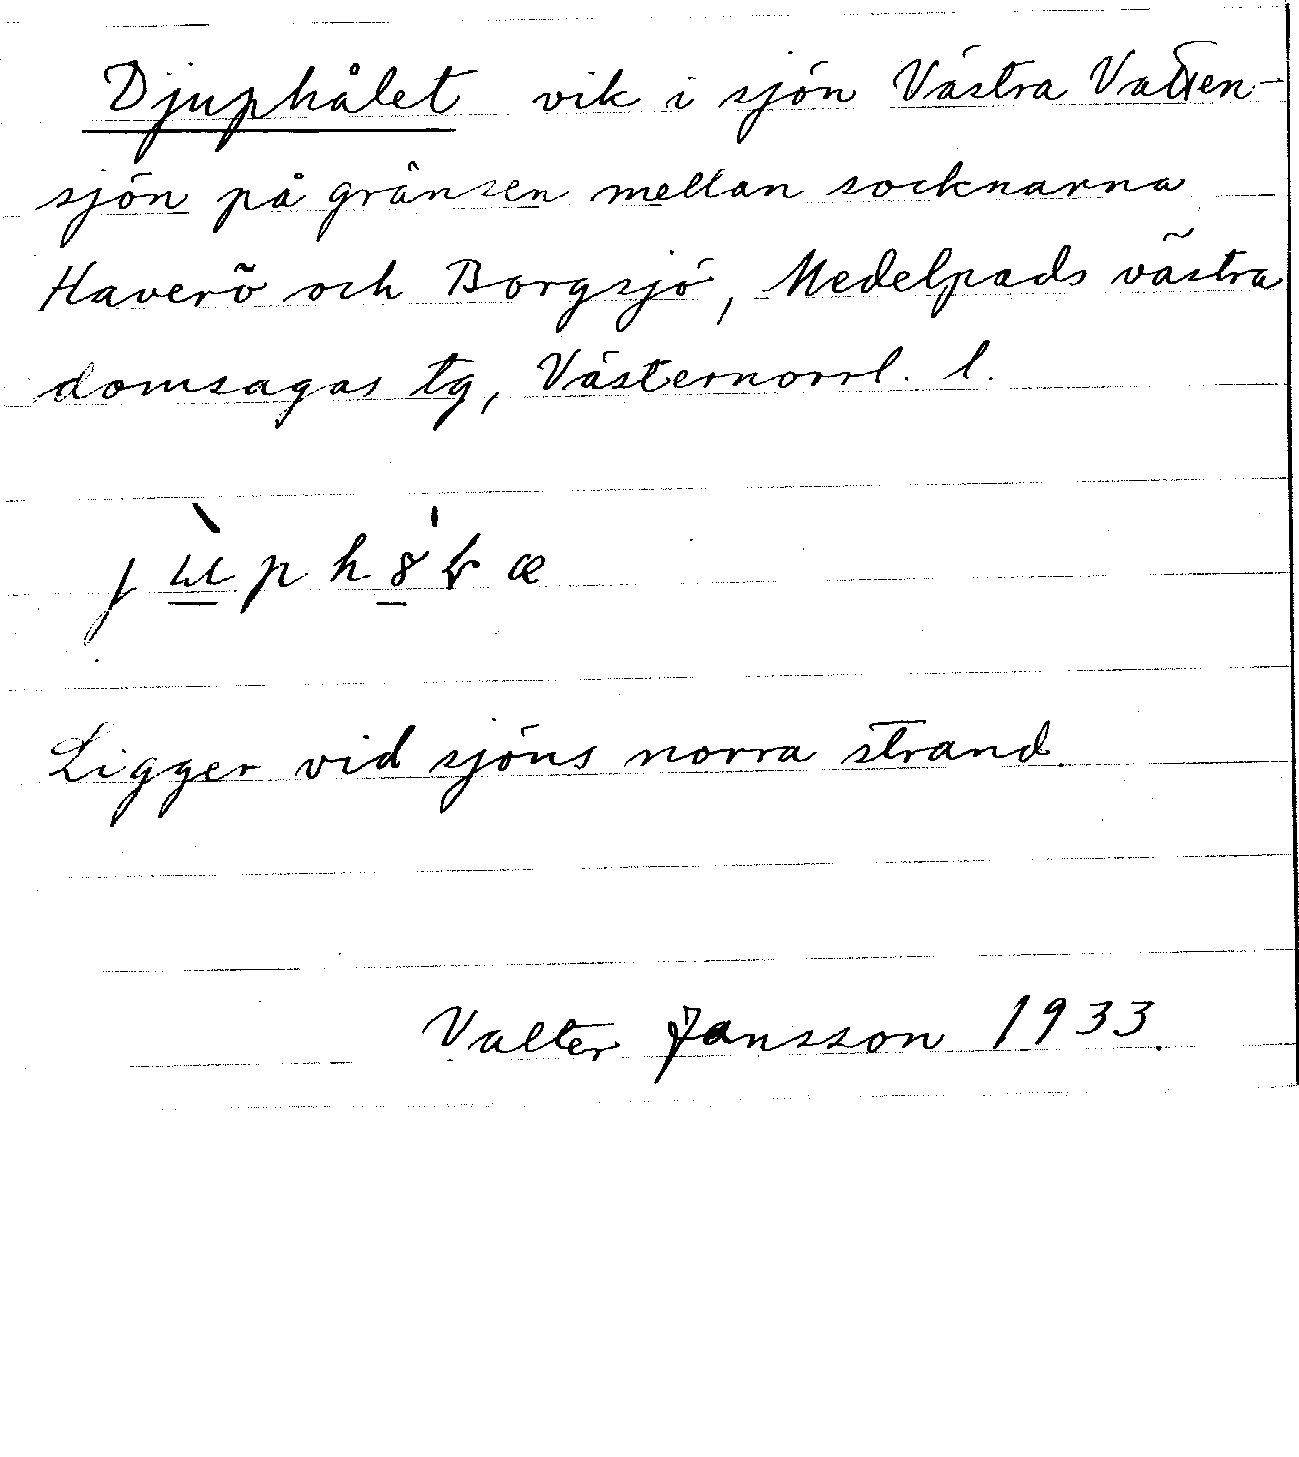 Djuphålet vik i sjön Västra Vatten-
sjön på gränsen mellan socknarna
Haverö och Borgsjö, Medelpads västra
domsagas tg, Västernorrl. l.
Ligger vid sjöns norra strand.
Valter Jansson 1933.